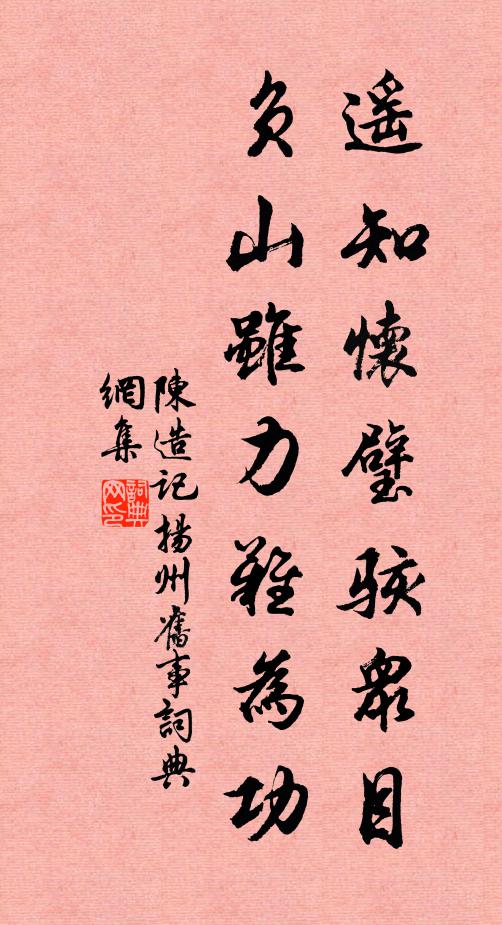 遥知懷璧駭衆目
負山雖力難為功
陳造記揚州舊事詞典
網集
詞典網印